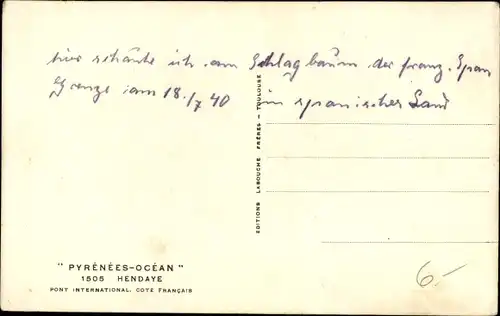 hier schäute ich am Schlagbaum der franz. Span
Grenze am 18./7 40 im spanisches Land
EDITIONS LABOUCHE FRÈRES - TOULOUSE
" PYRÉNÉES-OCÉAN "
1505 HENDAYE
PONT INTERNATIONAL, COTE FRANÇAIS
6.-